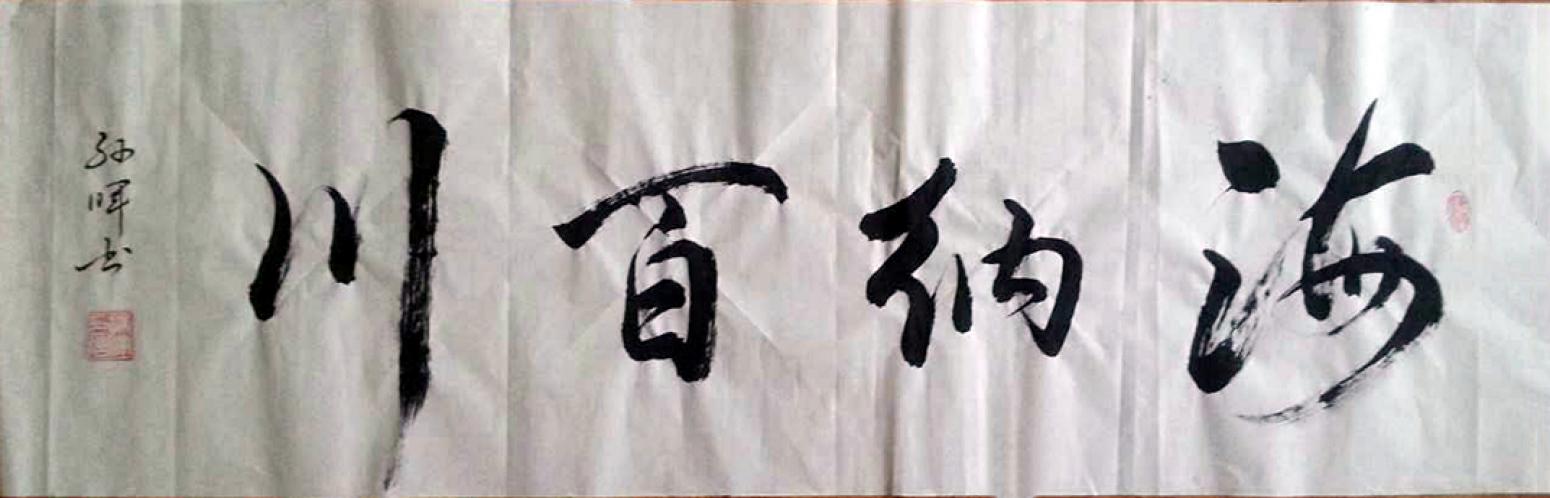 海纳百川
孙晖书